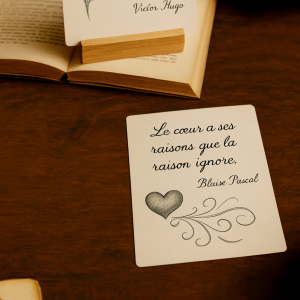 Victor Hugo
Le cœur a ses
raisons que la
raison ignore.
Blaise Pascal